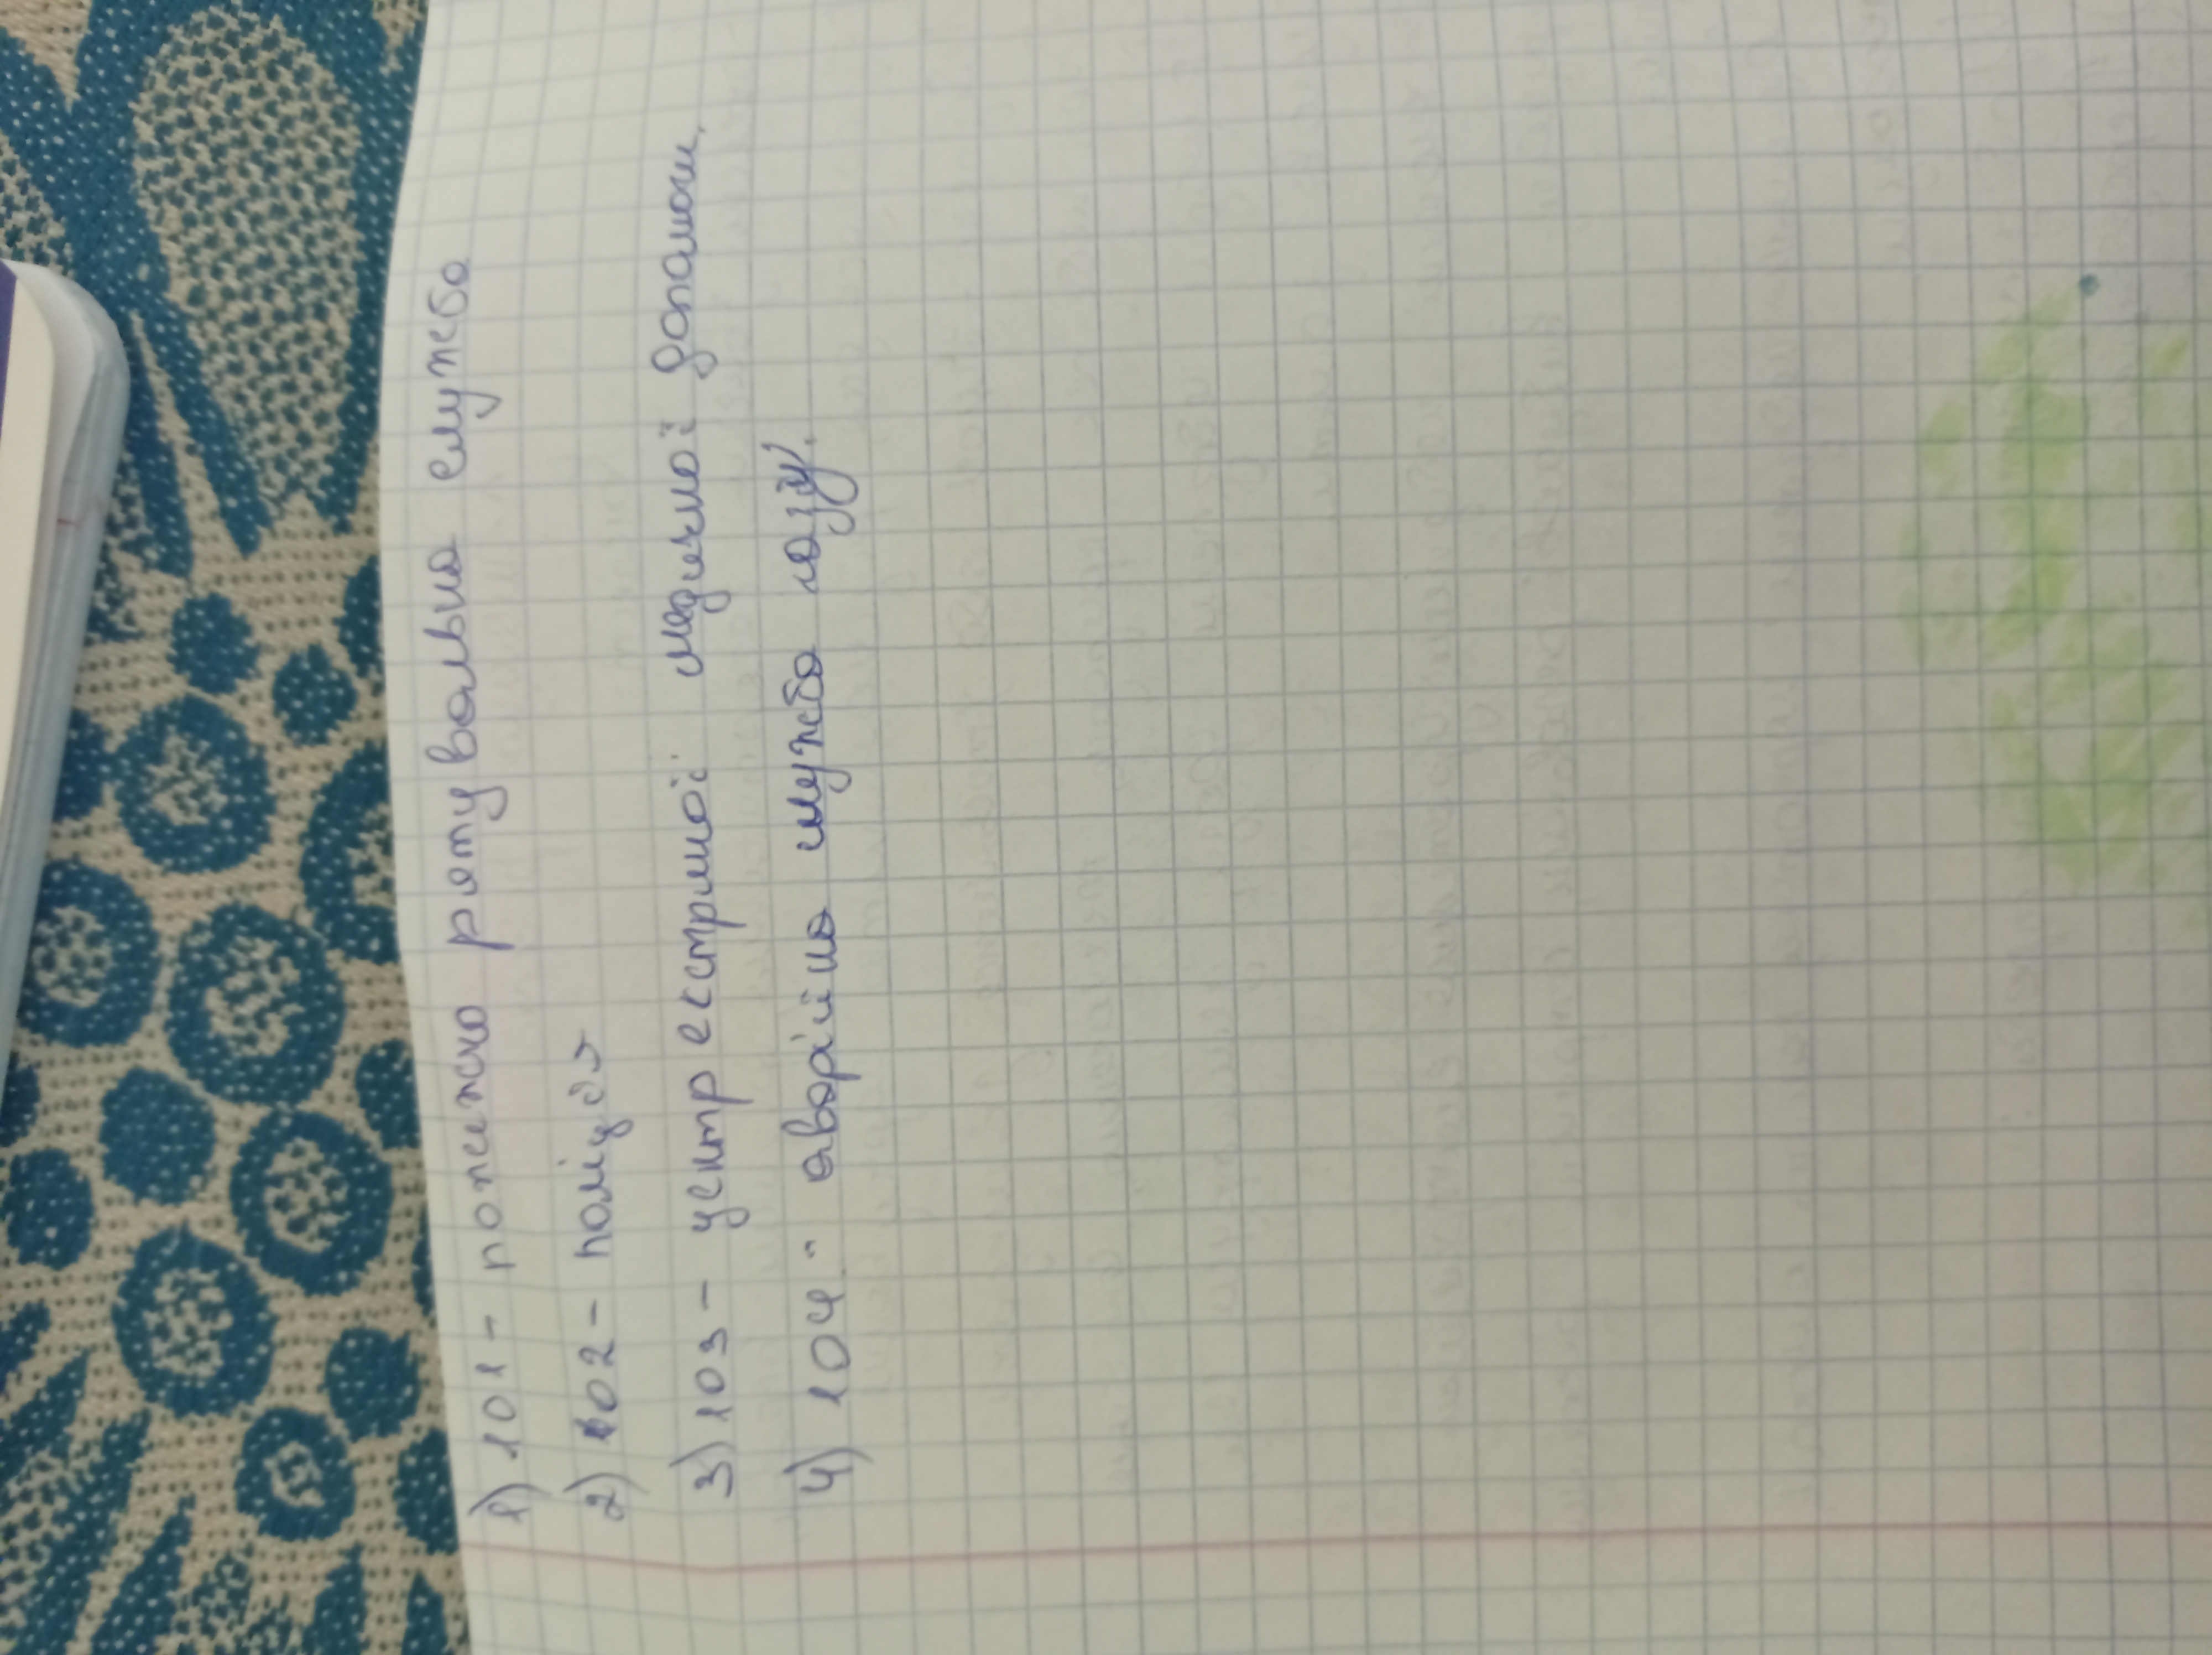 1) 101 - пожежно рятувальна служба
2) 102 - поліція
3) 103 - центр екстрної медичної допомои.
4) 104 - аварійна служба газу.